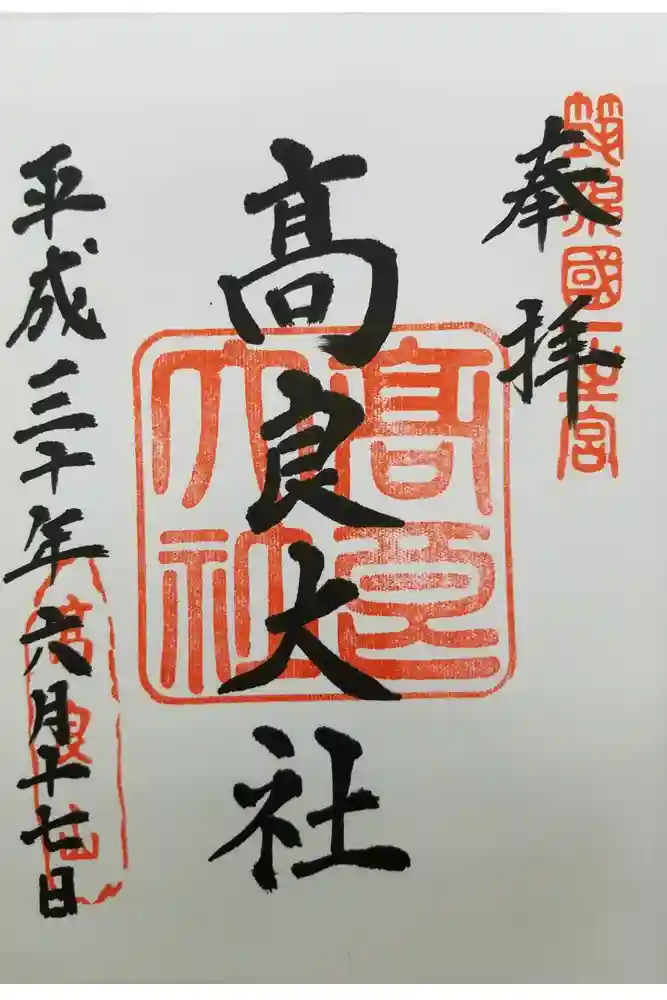 奉拝
筑後國一之宮
高良大社
高良大社
平成三十年六月十七日
高良山